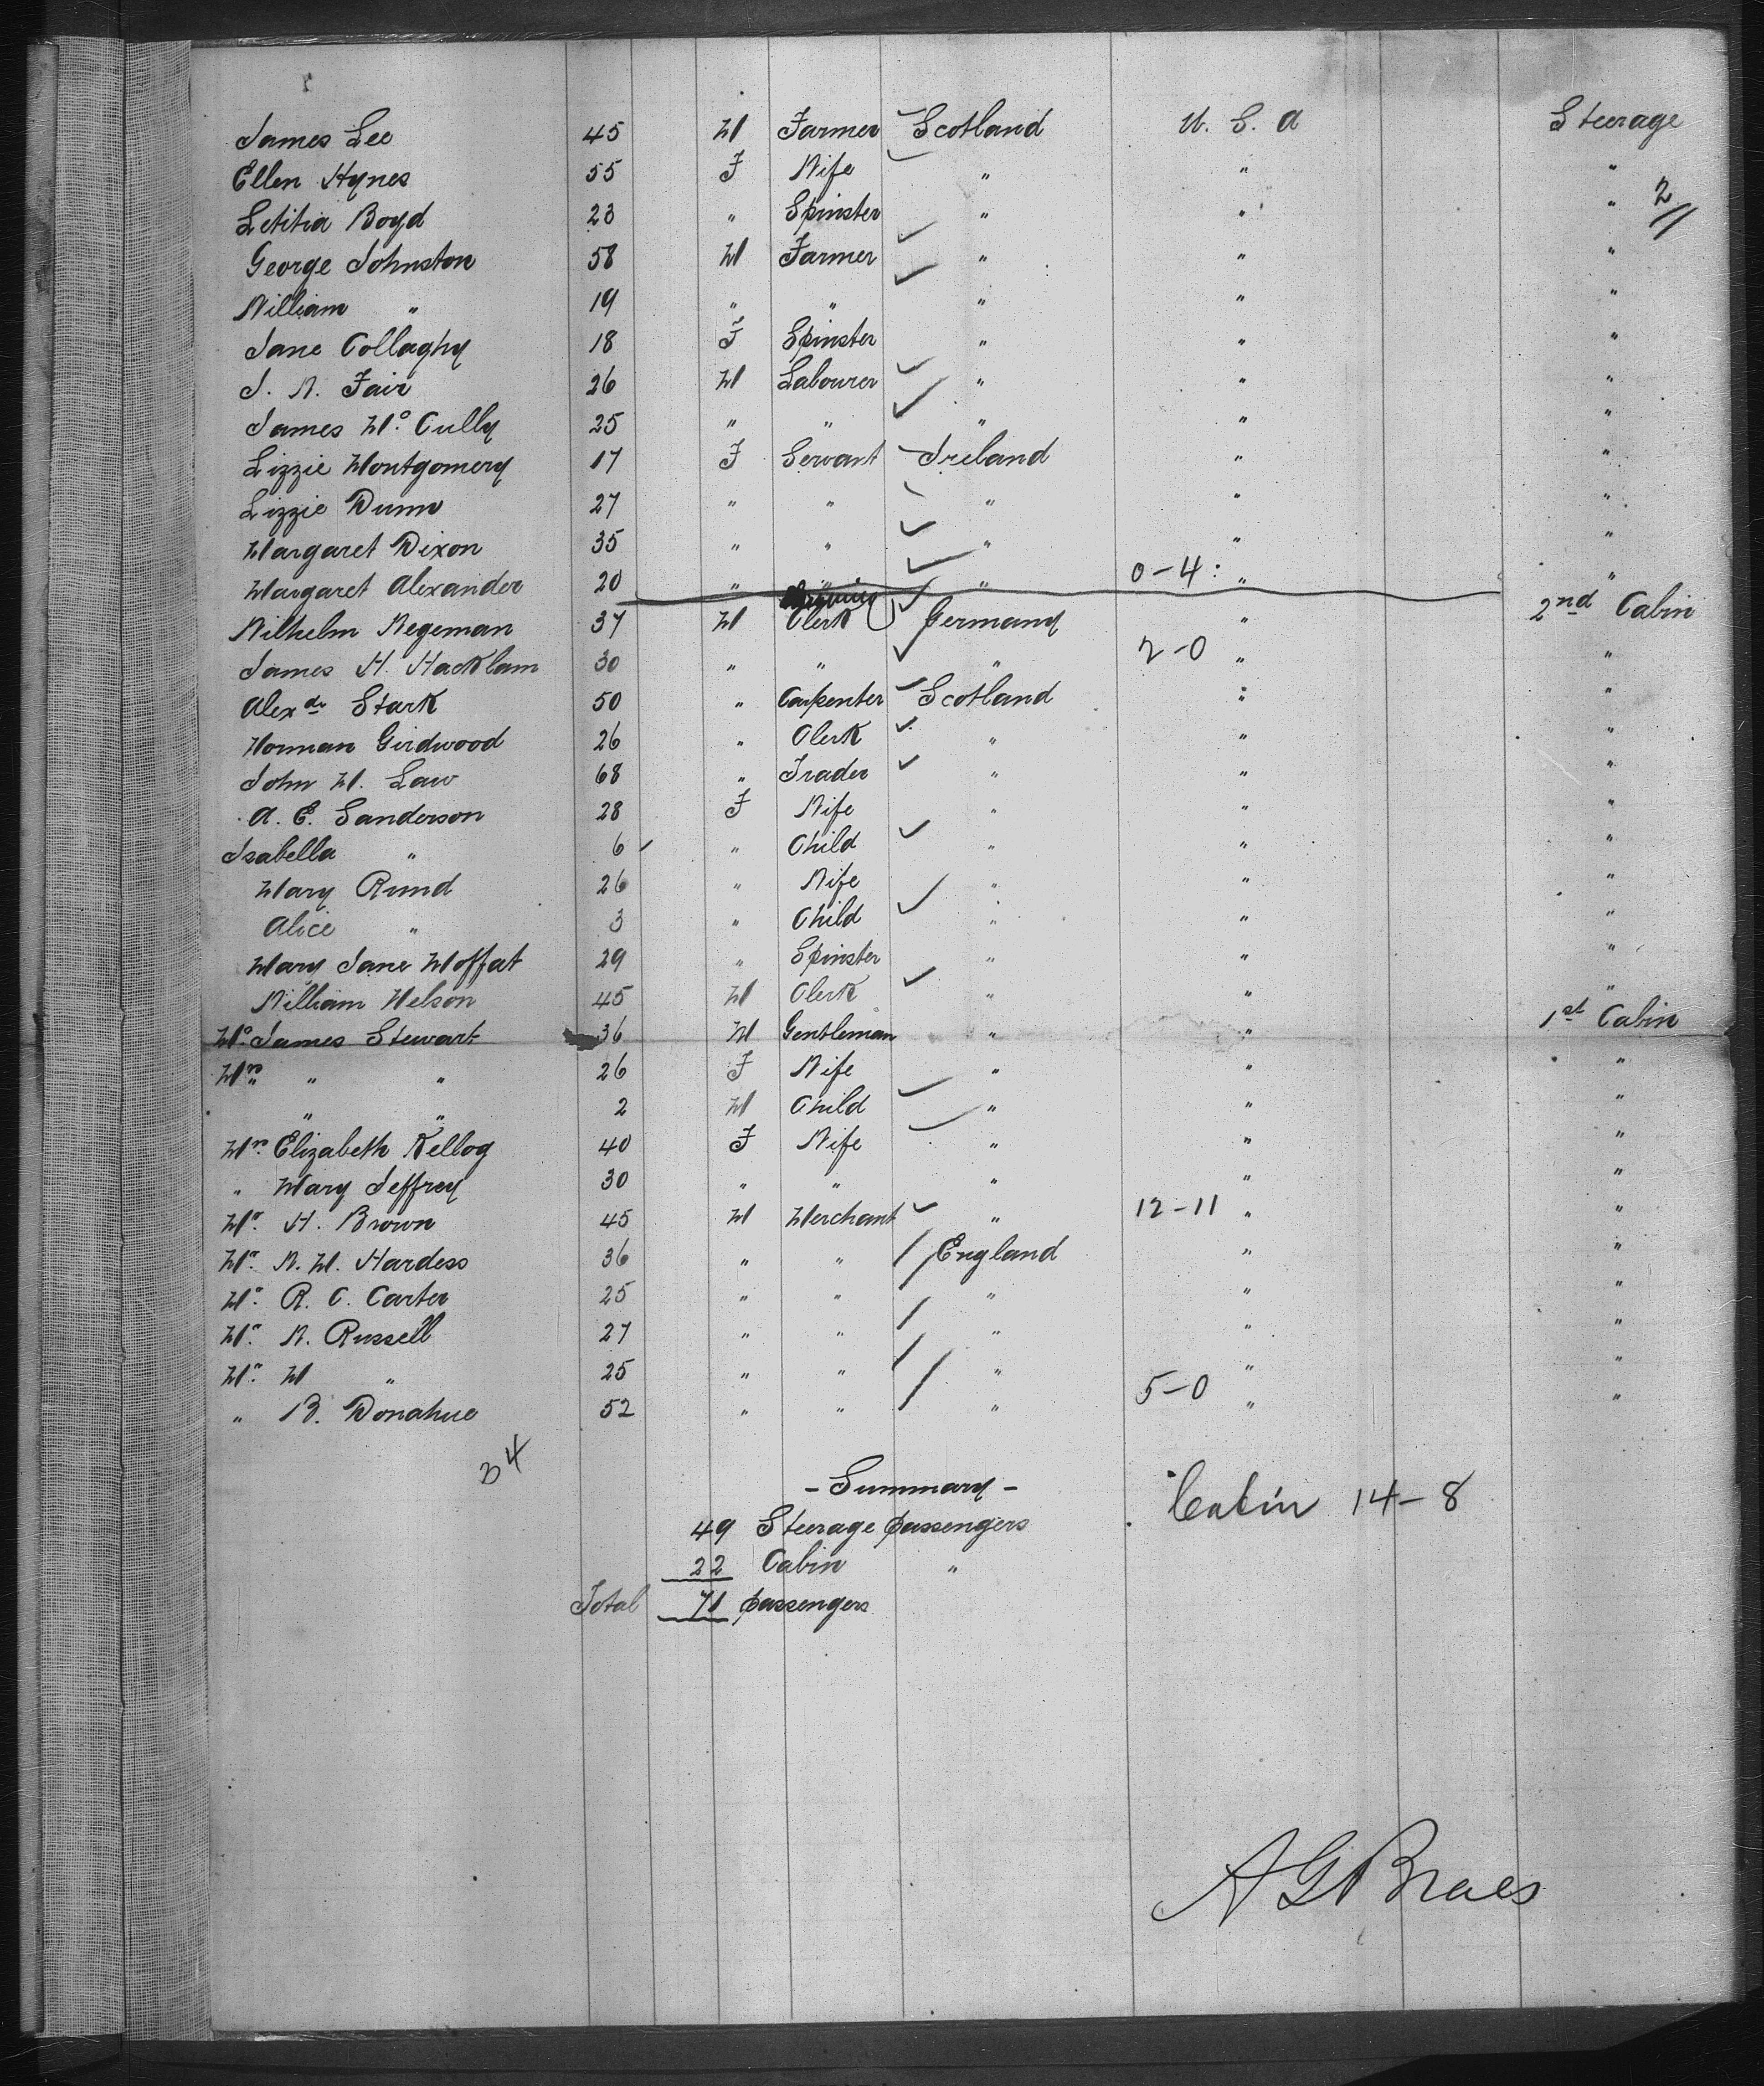 James Lee 45 M Farmer Scotland U. S. A Steerage
Ellen Hynes 55 F Wife " " "
Letitia Boyd 23 " Spinster " " " 2
George Johnston 58 M Farmer " " "
William " 19 " " " " "
Jane Collaghy 18 F Spinster " " "
J. W. Fair 26 M Labourer " " "
James Mc. Cully 25 " " " " "
Lizzie Montgomery 17 F Servant Ireland " "
Lizzie Dunn 27 " " " " "
Margaret Dixon 35 " " " " "
Margaret Alexander 20 " " " 0-4: " "
Wilhelm Wegeman 37 M Clerk Germany " 2nd Cabin
James H. Hacklam 30 " " " 2-0 " "
Alexdr Stark 50 " Carpenter Scotland " "
Norman Girdwood 26 " Clerk " " "
John M. Law 68 " Trader " " "
A. E. Sanderson 28 F Wife " " "
Isabella " 6 " Child " " "
Mary Rund 26 " Wife " " "
Alice " 3 " Child " " "
Mary Jane Moffat 29 " Spinster " " "
William Nelson 45 M Clerk " " "
Mr James Stewart 36 M Gentleman " " 1st Cabin
Mrs " " 26 F Wife " " "
" " 2 M Child " " "
Mrs Elizabeth Kellog 40 F Wife " " "
" Mary Jeffrey 30 " " " " "
Mr. H. Brown 45 M Merchant " 12-11 " "
Mr. W. M. Hardess 36 " " England " "
Mr. R. C. Carter 25 " " " " "
Mr. W. Russell 27 " " " " "
Mr. M " 25 " " " " "
" B. Donahue 52 " " " 5-0 " "
34
- Summary -
Cabin 14-8
49 Steerage passengers
22 Cabin "
Total 71 passengers
A G Braes